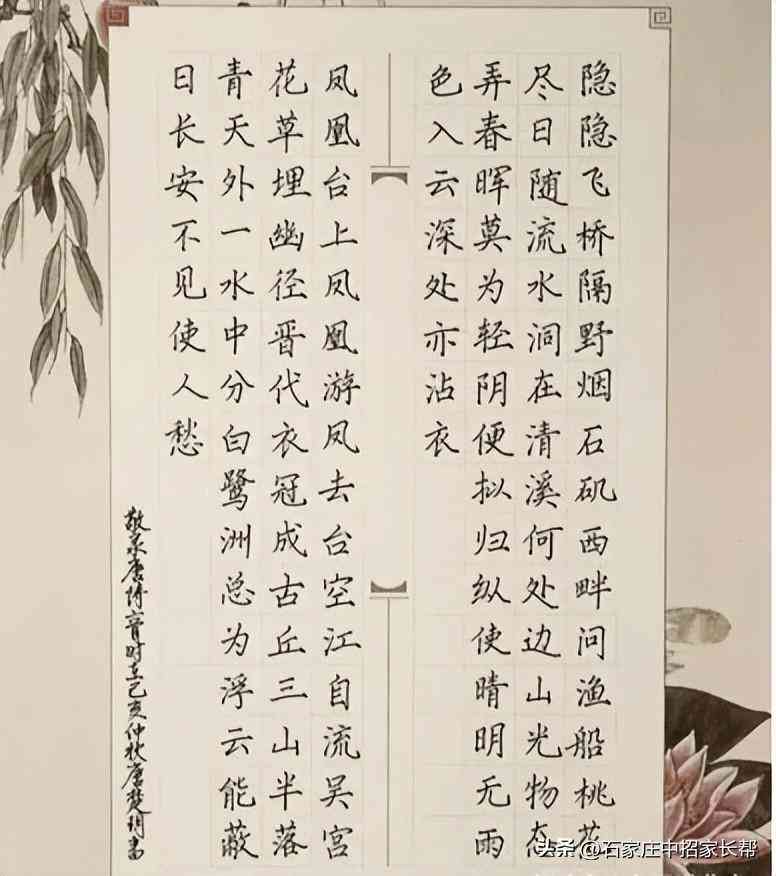 隐隐飞桥隔野烟石矶西畔问渔船桃花
尽日随流水洞在清溪何处边山光物态
弄春晖莫为轻阴便拟归纵使晴明无雨
色入云深处亦沾衣
凤凰台上凤凰游凤去台空江自流吴宫
花草埋幽径晋代衣冠成古丘三山半落
青天外一水中分白鹭洲总为浮云能蔽
日长安不见使人愁
敬录唐诗二首时在己亥仲秋唐楚玥书
头条 @石家庄中招家长帮